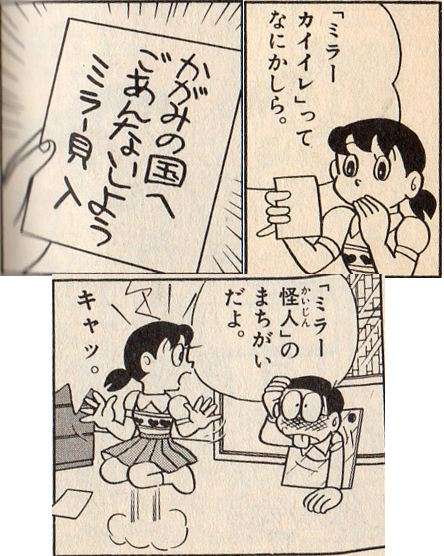 「ミラー
カイイレ」って
なにかしら。
かがみの国へ
ごあんないしよう
ミラー貝入
「ミラー
怪人」の
かいじん
まちがい
だよ。
キャッ。